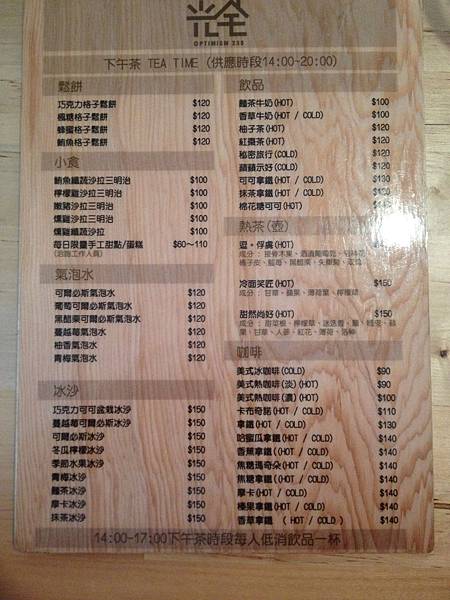 OPTIMISM 258
下午茶 TEA TIME (供應時段14:00~20:00)
鬆餅
巧克力格子鬆餅 $120
楓糖格子鬆餅 $120
蜂蜜格子鬆餅 $120
鮪魚格子鬆餅 $120
小食
鮪魚纖蔬沙拉三明治 $100
檸檬雞沙拉三明治 $100
嫩豬沙拉三明治 $100
燻雞沙拉三明治 $100
燻雞纖蔬沙拉 $100
每日限量手工甜點/蛋糕 $60~110
(洽詢工作人員)
氣泡水
可爾必斯氣泡水 $120
葡萄可爾必斯氣泡水 $120
黑醋栗可爾必斯氣泡水 $120
蔓越莓氣泡水 $120
柚香氣泡水 $120
青梅氣泡水 $120
冰沙
巧克力可可盆栽冰沙 $150
蔓越莓可爾必斯冰沙 $150
可爾必斯冰沙 $150
冬瓜檸檬冰沙 $150
季節水果冰沙 $150
青梅冰沙 $150
麵茶冰沙 $150
摩卡冰沙 $150
抹茶冰沙 $150
飲品
麵茶牛奶(HOT) $100
香草牛奶(HOT / COLD) $100
柚子茶(HOT) $120
紅棗茶(HOT) $120
秘密旅行(COLD) $120
蘋蘋示好(COLD) $120
可可拿鐵(HOT / COLD) $130
抹茶拿鐵(HOT / COLD)
棉花糖可可(HOT)
熱茶(壺)
逗。俘虜(HOT)
冷面笑匠(HOT) $150
成分 : 甘草、蘋果、薄荷葉、檸檬草
甜然尚好(HOT) $150
咖啡
美式冰咖啡(COLD) $90
美式熱咖啡(淡)(HOT) $90
美式熱咖啡(濃)(HOT) $100
卡布奇諾(HOT / COLD) $110
拿鐵(HOT / COLD) $130
哈蜜瓜拿鐵(HOT / COLD) $140
香蕉拿鐵((HOT / COLD) $140
焦糖瑪奇朵(HOT / COLD) $140
焦糖拿鐵((HOT / COLD) $140
摩卡(HOT / COLD) $140
榛果拿鐵(HOT / COLD) $140
香草拿鐵 ( HOT / COLD ) $140
14:00-17:00下午茶時段每人低消飲品一杯